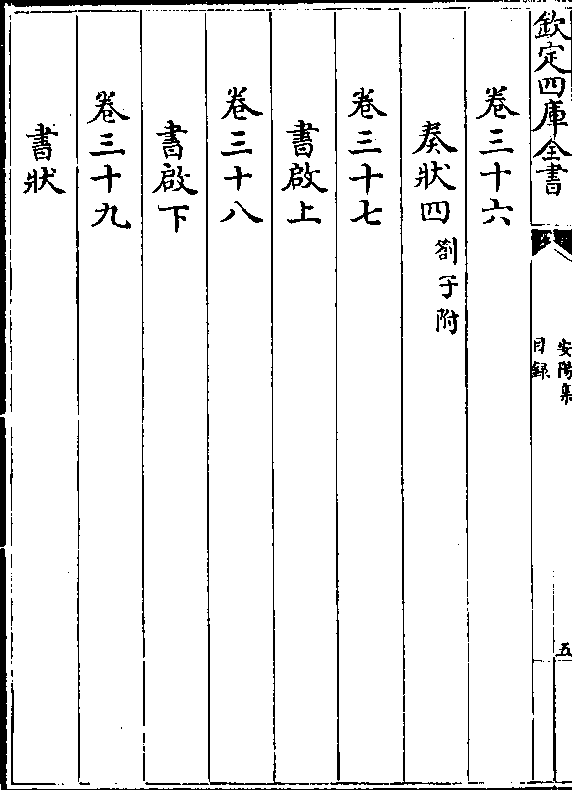 欽定四庫全書
安陽集
目録
五
卷三十六
奏狀四劄子附
卷三十七
書啟上
卷三十八
書啟下
卷三十九
書狀